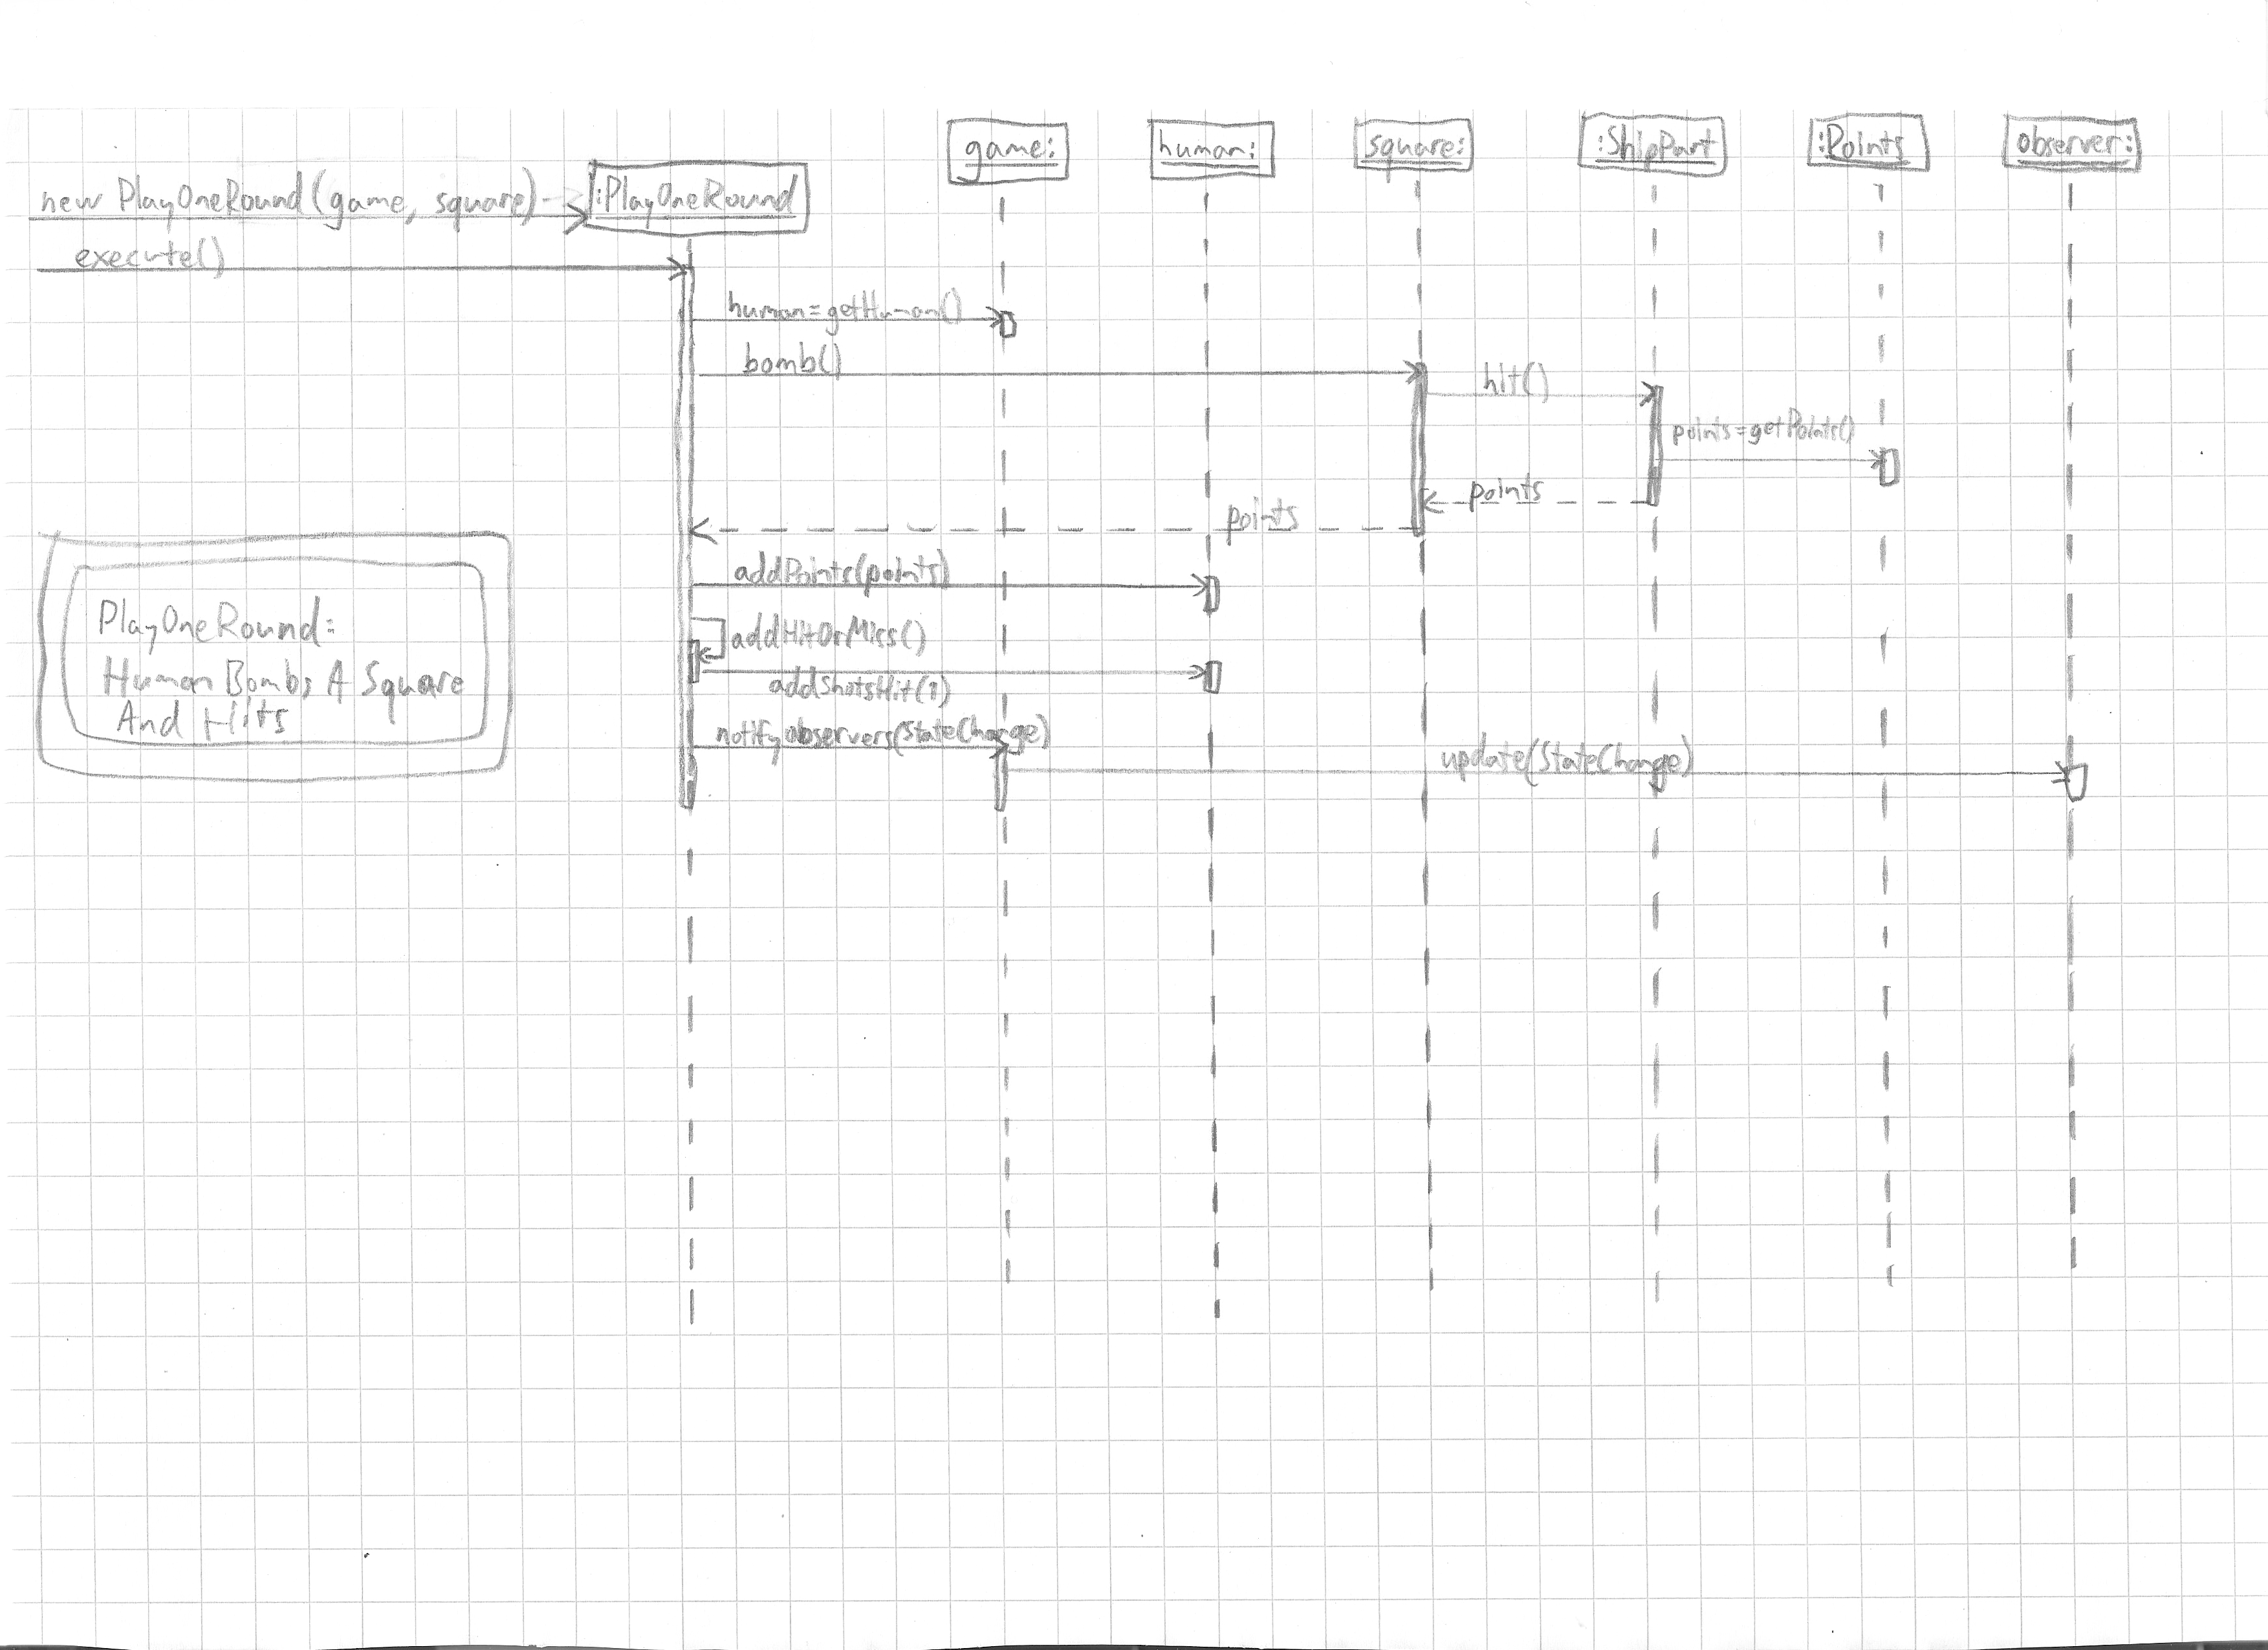 game:
human:
square:
:ShipPart
:Points
observer:
new PlayOneRound(game, square)
:PlayOneRound
execute()
human=getHuman()
bomb()
hit()
points=getPoints()
points
points
addPoints(points)
addHitOrMiss()
addShotsHit(1)
notifyobservers(StateChange)
update(StateChange)
PlayOneRound:
Human Bombs A Square
And Hits